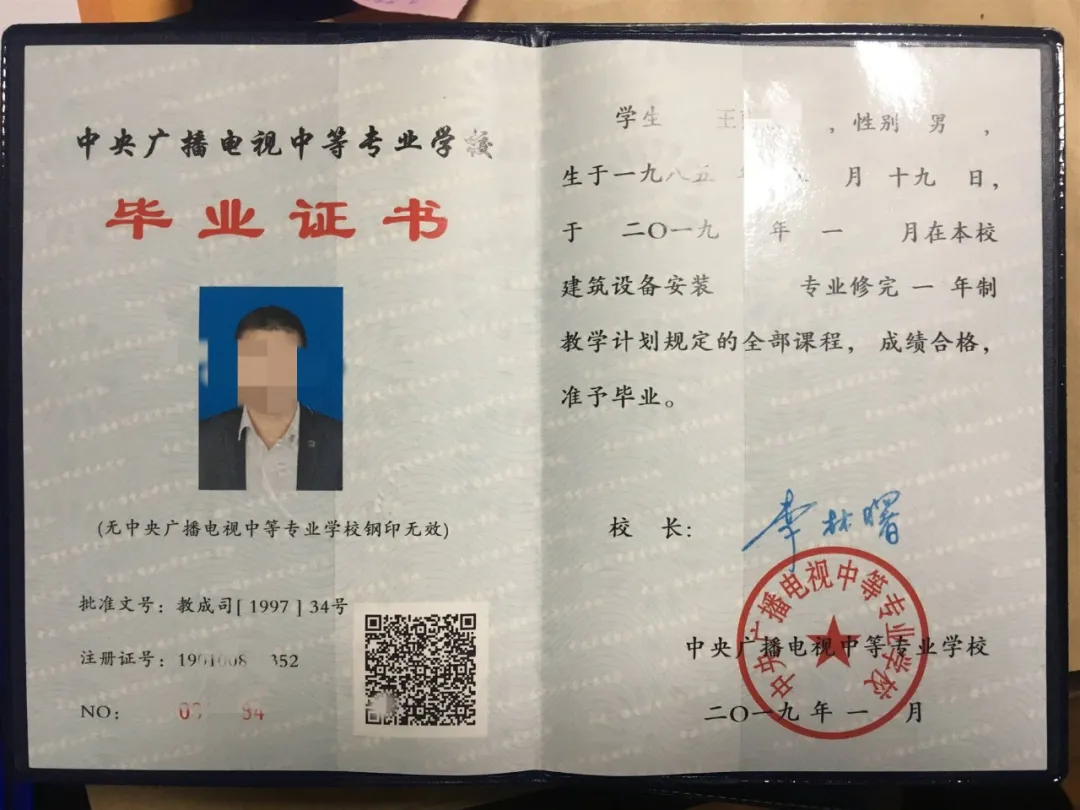 中央广播电视中等专业学校
毕业证书
(无中央广播电视中等专业学校钢印无效)
批准文号：教成司[1997]34号
注册证号：1901008 352
NO： 94
学生 王 ，性别 男 ，
生于一九八五 月 十九 日，
于 二〇一九 年 一 月在本校
建筑设备安装 专业修完 一 年制
教学计划规定的全部课程， 成绩合格，
准予毕业。
校 长： 李林曙
中央广播电视中等专业学校
中央广播电视中等专业学校
二〇一九 年 一 月